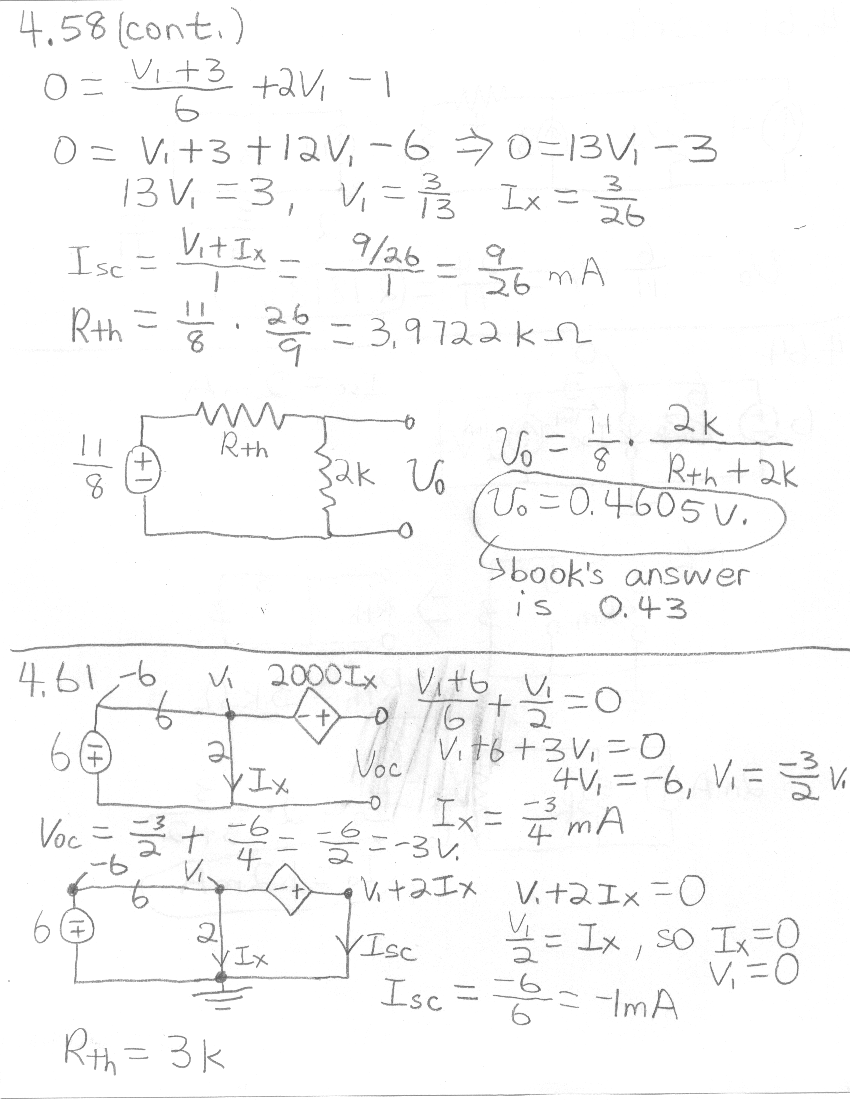 4.58 (cont.)
0 = (V₁+3)/6 + 2V₁ − 1
0 = V₁+3+12V₁−6 ⇒ 0=13V₁−3
13V₁ = 3, V₁ = 3/13 Ix = 3/26
Isc = (V₁+Ix)/1 = (9/26)/1 = 9/26 mA
Rth = 11/8 · 26/9 = 3.9722 kΩ
11/8 + − Rth 2k V₀
V₀ = 11/8 · 2k/(Rth+2k)
V₀ = 0.4605 V.
↳book's answer
is 0.43
4.61 −6 6 V₁ 2000Ix − +
6 − + 2 Ix Voc
(V₁+6)/6 + V₁/2 = 0
V₁+6+3V₁ = 0
4V₁ = −6, V₁ = −3/2 V.
Ix = −3/4 mA
Voc = −3/2 + −6/4 = −6/2 = −3V.
−6 6 V₁ − + V₁+2Ix
6 − + 2 Ix Isc
V₁+2Ix = 0
V₁/2 = Ix, so Ix=0
V₁=0
Isc = −6/6 = −1mA
Rth = 3k